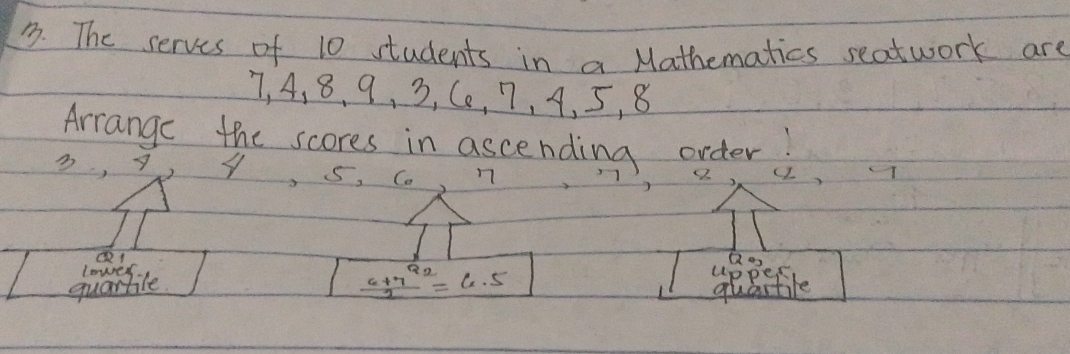 3. The serves of 10 students in a Mathematics seatwork are
7, 4, 8, 9, 3, 6, 7, 4, 5, 8
Arrange the scores in ascending order!
3, 4, 4, 5, 6, 7, 7, 8, 8, 9
Q1 lower quartile
6+7/2 Q2 = 6.5
Q3 upper quartile